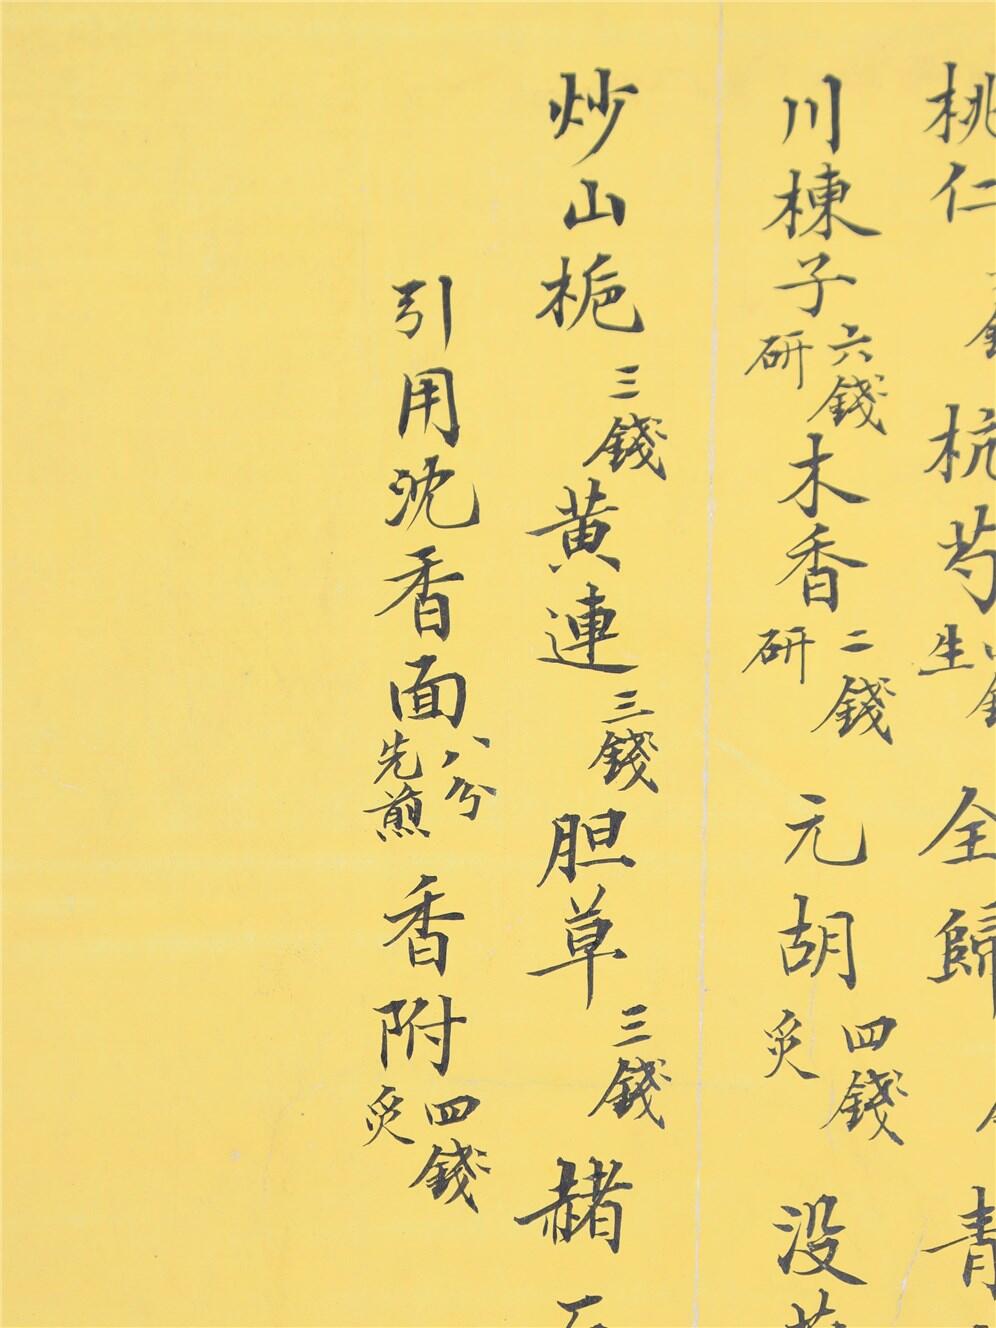 桃仁 杭芍生 全歸 青
川楝子六錢研 木香二錢研 元胡四錢炙 没
炒山梔三錢 黄連三錢 胆草三錢 赭石
引用沈香面八分先煎 香附四錢炙